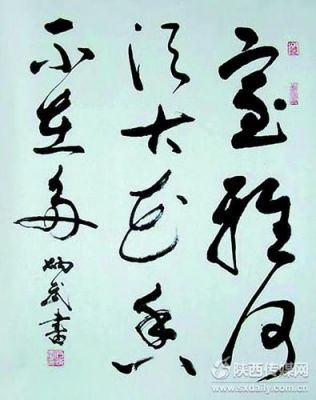 室雅何
须大花香
不在多
炳武書
陕西传媒网
www.sxdaily.com.cn